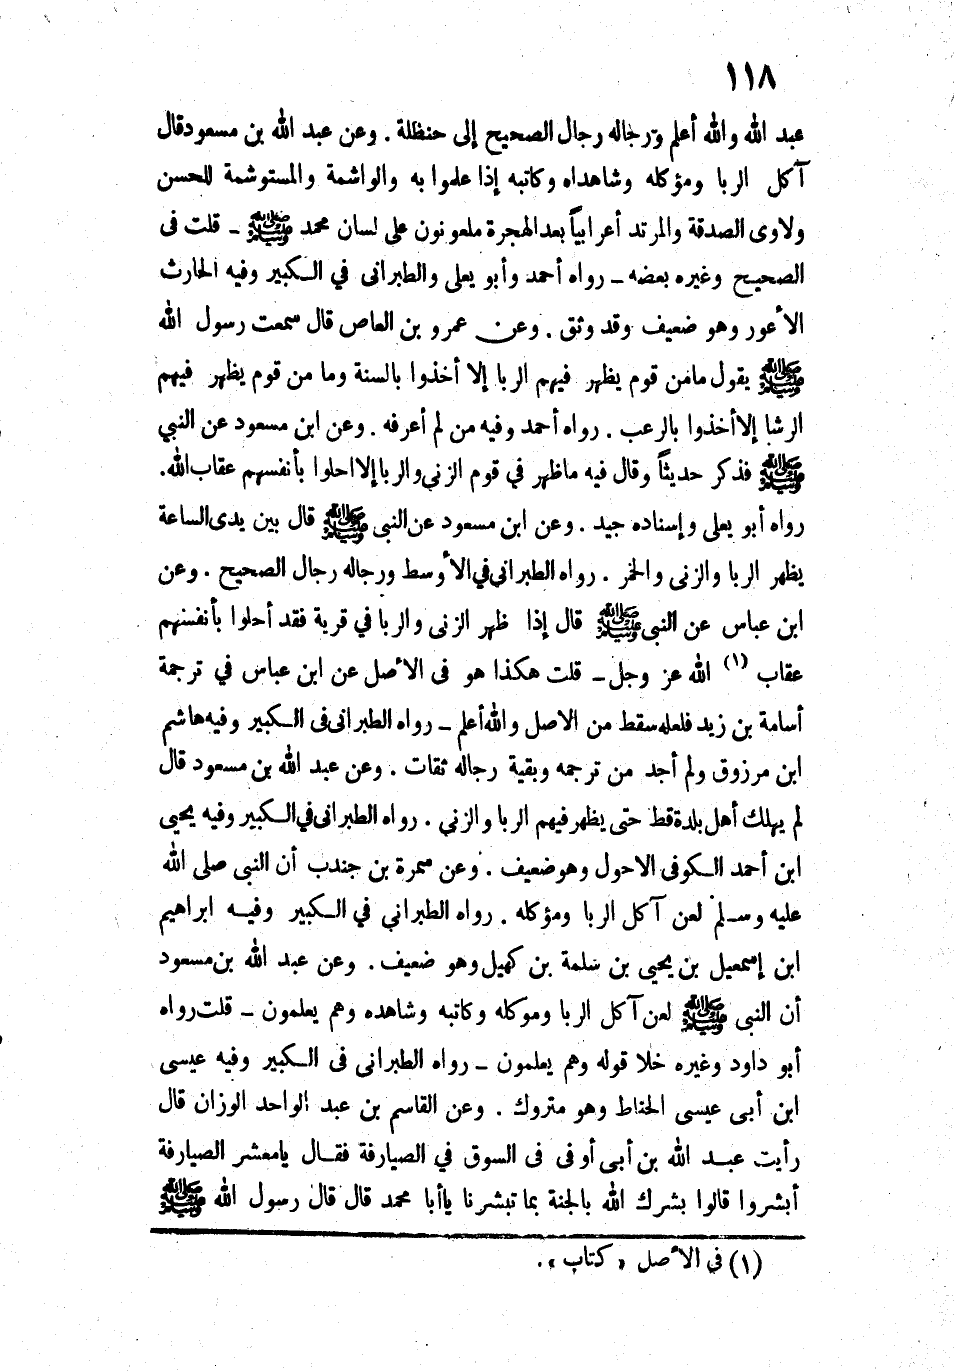 ١١٨
عبد الله والله أعلم ورجاله رجال الصحيح إلى حنظلة . وعن عبد الله بن مسعود قال
آكل الربا ومؤكله وشاهداه وكاتبه إذا علموا به والواشمة والمستوشمة للحسن
ولاوى الصدقة والمرتد أعرابياً بعد الهجرة ملعونون على لسان محمد ﷺ ـ قلت فى
الصحيح وغيره بعضه ـ رواه أحمد وأبو يعلى والطبرانى في الكبير وفيه الحارث
الأعور وهو ضعيف وقد وثق . وعن عمرو بن العاص قال سمعت رسول الله
ﷺ يقول مامن قوم يظهر فيهم الربا إلا أخذوا بالسنة وما من قوم يظهر فيهم
الرشا إلا أخذوا بالرعب . رواه أحمد وفيه من لم أعرفه . وعن ابن مسعود عن النبي
ﷺ فذكر حديثاً وقال فيه ماظهر في قوم الزنى والربا إلا احلوا بأنفسهم عقاب الله.
رواه أبو يعلى وإسناده جيد . وعن ابن مسعود عن النبى ﷺ قال بين يدى الساعة
يظهر الربا والزنى والخمر . رواه الطبراني في الأوسط ورجاله رجال الصحيح . وعن
ابن عباس عن النبى ﷺ قال إذا ظهر الزنى والربا في قرية فقد أحلوا بأنفسهم
عقاب (١) الله عز وجل ـ قلت هكذا هو فى الأصل عن ابن عباس في ترجمة
أسامة بن زيد فلعله سقط من الاصل والله أعلم ـ رواه الطبرانى فى الكبير وفيه هاشم
ابن مرزوق ولم أجد من ترجمه وبقية رجاله ثقات . وعن عبد الله بن مسعود قال
لم يهلك أهل بلدة قط حتى يظهر فيهم الربا والزني . رواه الطبرانى في الكبير وفيه يحيى
ابن أحمد الكوفى الاحول وهو ضعيف . وعن سمرة بن جندب أن النبى صلى الله
عليه وسلم لعن آكل الربا ومؤكله . رواه الطبراني في الكبير وفيه ابراهيم
ابن إسمعيل بن يحيى بن سلمة بن كهيل وهو ضعيف . وعن عبد الله بن مسعود
أن النبى ﷺ لعن آكل الربا وموكله وكاتبه وشاهده وهم يعلمون ـ قلت رواه
أبو داود وغيره خلا قوله وهم يعلمون ـ رواه الطبرانى فى الكبير وفيه عيسى
ابن أبى عيسى الحناط وهو متروك . وعن القاسم بن عبد الواحد الوزان قال
رأيت عبد الله بن أبى أوفى فى السوق في الصيارفة فقال يامعشر الصيارفة
أبشروا قالوا بشرك الله بالجنة بما تبشرنا ياأبا محمد قال قال رسول الله ﷺ
(١) في الأصل « كتاب » .